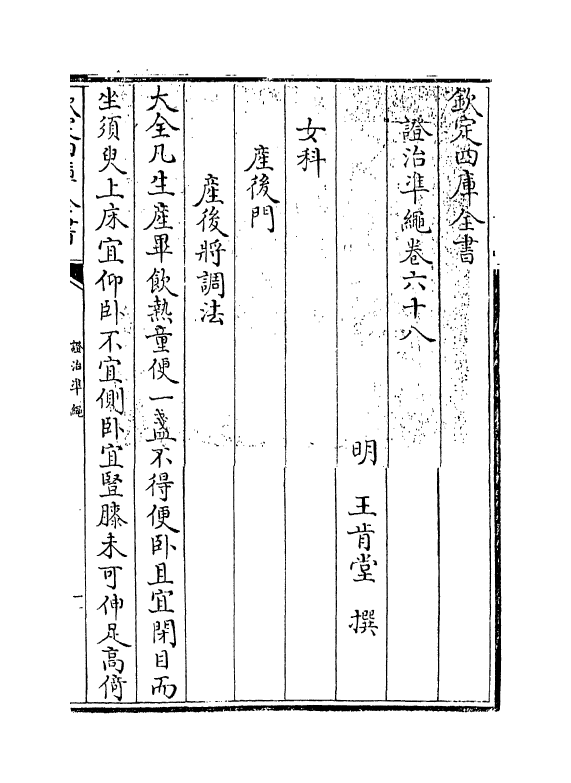 欽定四庫全書
證治準繩卷六十八
明 王肯堂 撰
女科
産後門
産後將調法
大全凡生産畢飲熱童便一盞不得便卧且宜閉目而
坐須臾上床宜仰卧不宜側卧宜竪膝未可伸足高倚
欽定四庫全書
證治準繩
一